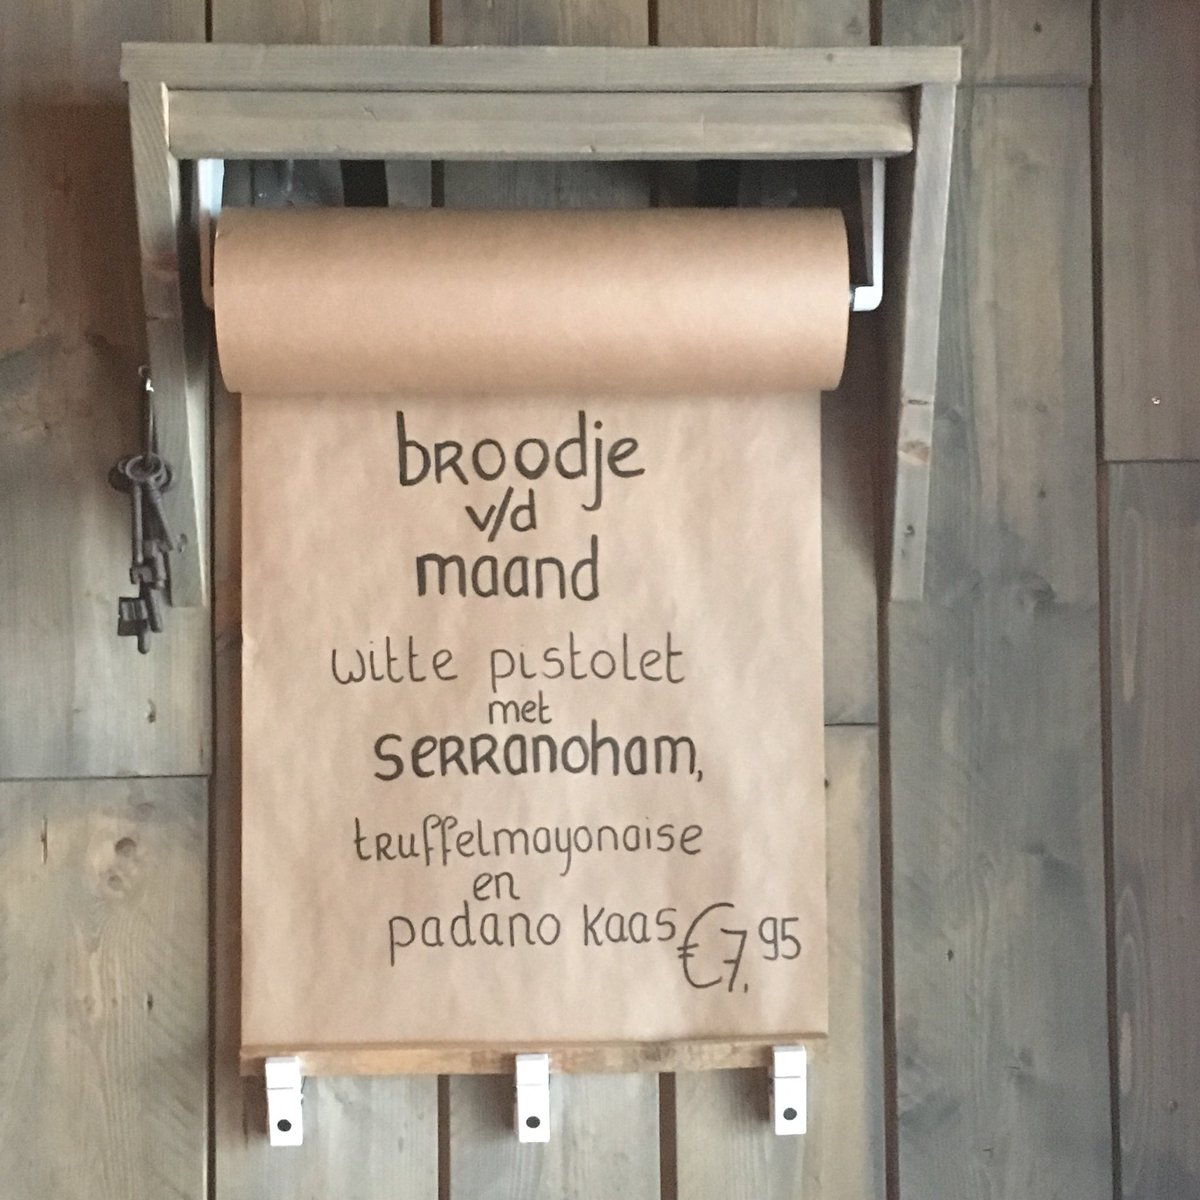 broodje
v/d
maand
witte pistolet
met
serranoham,
truffelmayonaise
en
padano kaas €7,95